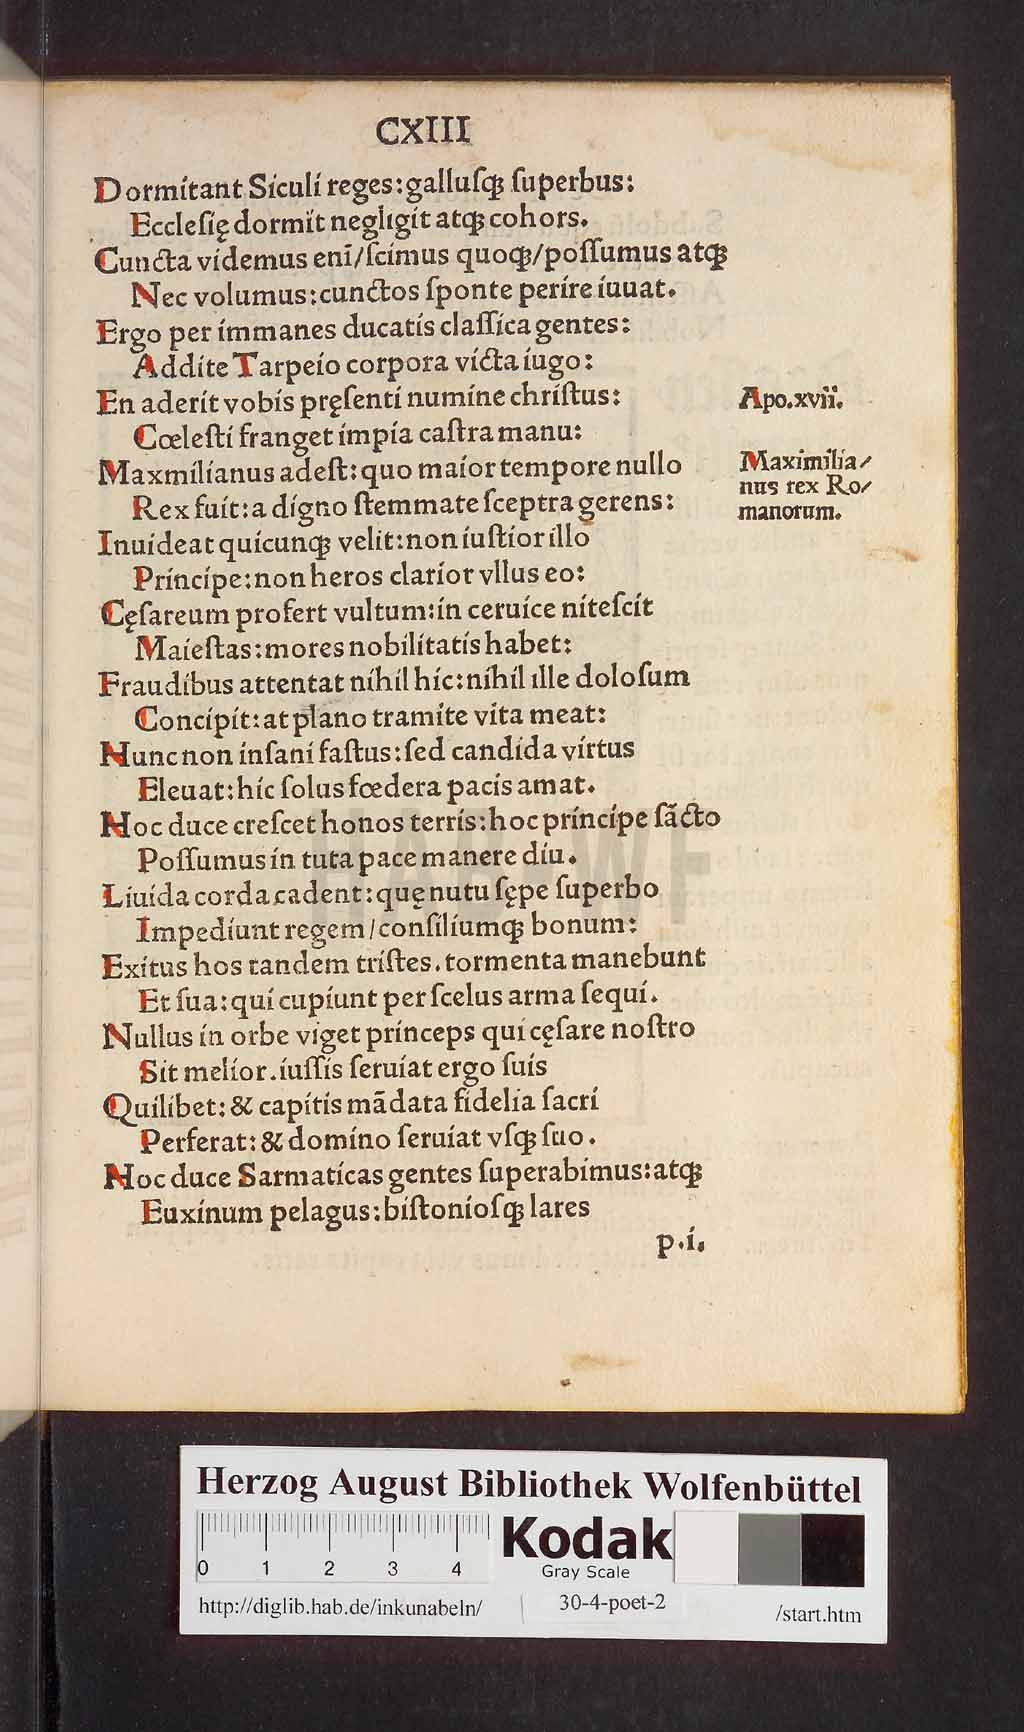 CXIII
Dormitant Siculi reges:galluſqꝫ ſuperbus:
Eccleſię dormit negligit atqꝫ cohors.
Cuncta videmus enī/ſcimus quoqꝫ/poſſumus atqꝫ
Nec volumus:cunctos ſponte perire iuuat.
Ergo per immanes ducatis claſſica gentes:
Addite Tarpeio corpora victa iugo:
En aderit vobis pręſenti numine chriſtus:
Apo.xvii.
Cœleſti franget impia caſtra manu:
Maxmilianus adeſt:quo maior tempore nullo
Rex fuit:a digno ſtemmate ſceptra gerens:
Maximilia/
nus rex Ro/
manorum.
Inuideat quicunqꝫ velit:non iuſtior illo
Principe:non heros clarior vllus eo:
Cęſareum profert vultum:in ceruice niteſcit
Maieſtas:mores nobilitatis habet:
Fraudibus attentat nihil hic:nihil ille doloſum
Concipit:at plano tramite vita meat:
Hunc non inſani faſtus:ſed candida virtus
Eleuat:hic ſolus fœdera pacis amat.
Hoc duce creſcet honos terris:hoc principe ſācto
Poſſumus in tuta pace manere diu.
Liuida corda cadent:quę nutu ſępe ſuperbo
Impediunt regem/conſiliumqꝫ bonum:
Exitus hos tandem triſtes.tormenta manebunt
Et ſua:qui cupiunt per ſcelus arma ſequi.
Nullus in orbe viget princeps qui cęſare noſtro
Sit melior.iuſſis ſeruiat ergo ſuis
Quilibet:& capitis mādata fidelia ſacri
Perferat:& domino ſeruiat vſqꝫ ſuo.
Hoc duce Sarmaticas gentes ſuperabimus:atqꝫ
Euxinum pelagus:biſtonioſqꝫ lares
p.i.
HAB WF
Herzog August Bibliothek Wolfenbüttel
0 1 2 3 4
Kodak
Gray Scale
http://diglib.hab.de/inkunabeln/
30-4-poet-2
/start.htm